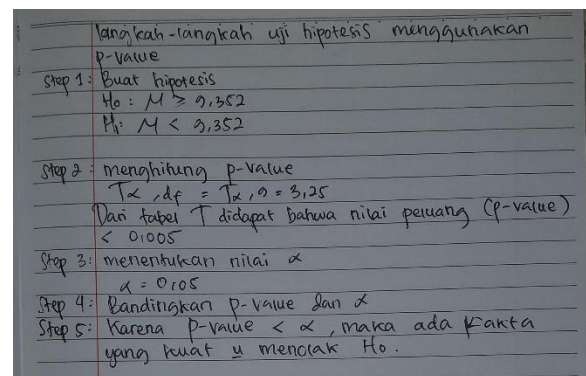 langkah-langkah uji hipotesis menggunakan
p-value
Step 1: Buat hipotesis
Ho : M ≥ 9,352
H1: M < 9,352
Step 2: menghitung p-value
Tα, df = Tα, 9 = 3,25
Dari tabel T didapat bahwa nilai peluang (p-value)
< 0,005
Step 3: menentukan nilai α
α = 0,05
Step 4: Bandingkan p-value dan α
Step 5: Karena p-value < α, maka ada fakta
yang kuat u menolak Ho.